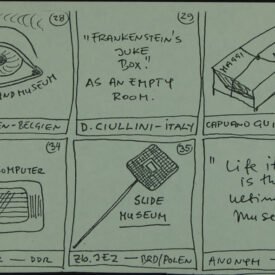 28
ND MUSEUM
EN-BELGIEN
29
"FRANKENSTEIN'S
JUKE
BOX."
AS AN EMPTY
ROOM.
D. CIULLINI-ITALY
MAGGI
CAPUANO GUI
34
COMPUTER
— DDR
35
SLIDE
MUSEUM
— BRD/POLEN
"Life it
is th
ultim
Muse
ANONYM —